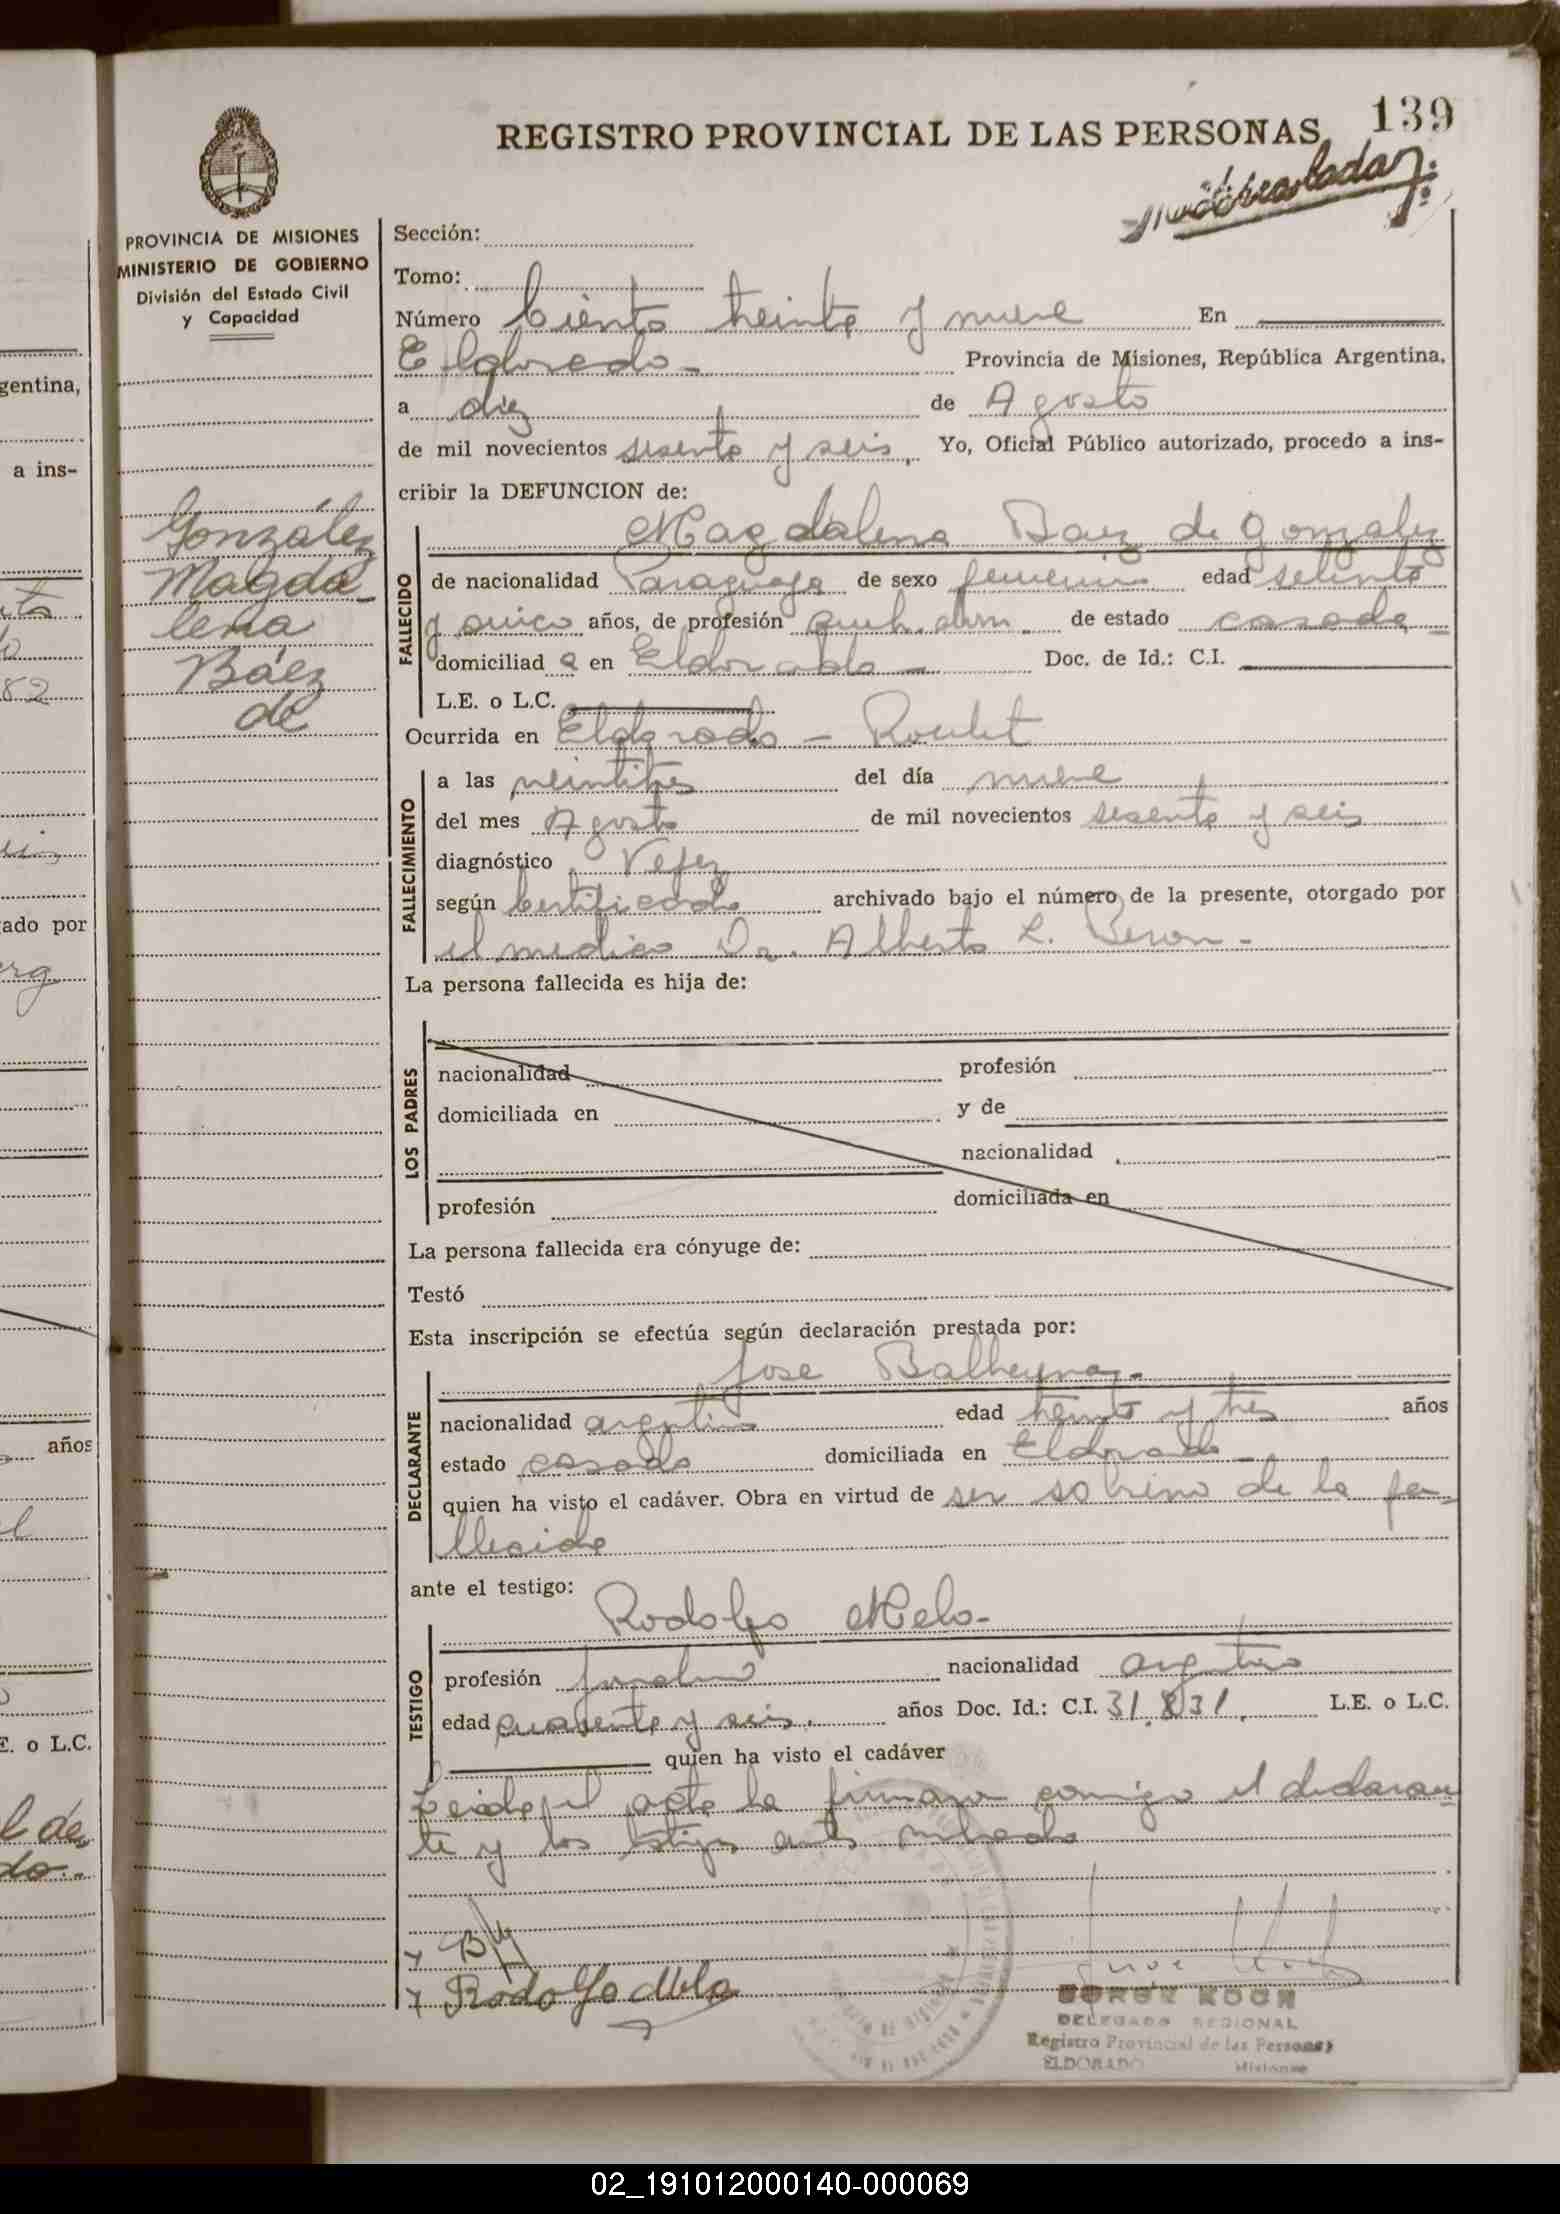 139
REGISTRO PROVINCIAL DE LAS PERSONAS
PROVINCIA DE MISIONES
MINISTERIO DE GOBIERNO
División del Estado Civil
y Capacidad
González
Magda-
lena
Báez
de
Sección:
Tomo:
Número Ciento treinta y nueve En
Eldorado - Provincia de Misiones, República Argentina,
a diez de Agosto
de mil novecientos sesenta y seis, Yo, Oficial Público autorizado, procedo a ins-
cribir la DEFUNCION de:
FALLECIDO
Magdalena Baez de Gonzalez
de nacionalidad Paraguaya de sexo femenino edad setenta
y cinco años, de profesión de estado casada -
domiciliad a en Eldorado - Doc. de Id.: C.I.
L.E. o L.C.
Ocurrida en Eldorado -
FALLECIMIENTO
a las veintitres del día nueve
del mes Agosto de mil novecientos sesenta y seis
diagnóstico Vejez
según Certificado archivado bajo el número de la presente, otorgado por
el medico Dr. Alberto L. -
La persona fallecida es hija de:
LOS PADRES
nacionalidad profesión
domiciliada en y de
nacionalidad
profesión domiciliada en
La persona fallecida era cónyuge de:
Testó
Esta inscripción se efectúa según declaración prestada por:
DECLARANTE
Jose
nacionalidad argentino edad treinta y tres años
estado casado domiciliada en Eldorado
quien ha visto el cadáver. Obra en virtud de ser sobrino de la fa-
llecida
ante el testigo:
TESTIGO
Rodolfo Melo-
profesión nacionalidad argentino
edad cuarenta y seis. años Doc. Id.: C.I. 31.831. L.E. o L.C.
quien ha visto el cadáver
Leida el acta la firman conmigo el declaran-
te y los testigos antes
Rodolfo Melo
JORGE KOCH
DELEGADO REGIONAL
Registro Provincial de las Personas
ELDORADO Misiones
gentina,
a ins-
82
gado por
años
E. o L.C.
02_191012000140-000069